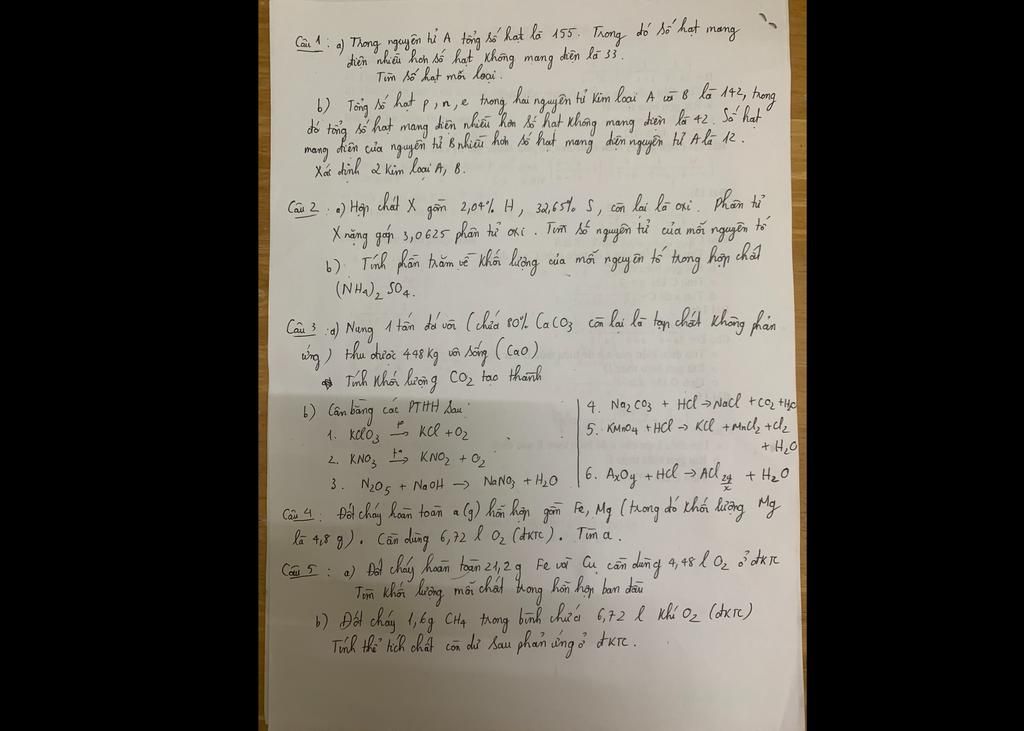 Câu 1: a) Trong nguyên tử A tổng số hạt là 155. Trong đó số hạt mang
điện nhiều hơn số hạt không mang điện là 33.
Tìm số hạt mỗi loại.
b) Tổng số hạt p, n, e trong hai nguyên tử kim loại A và B là 142, trong
đó tổng số hạt mang điện nhiều hơn số hạt không mang điện là 42. Số hạt
mang điện của nguyên tử B nhiều hơn số hạt mang điện nguyên tử A là 12.
Xác định 2 kim loại A, B.
Câu 2: a) Hợp chất X gồm 2,04% H, 32,65% S, còn lại là oxi. Phân tử
X nặng gấp 3,0625 phân tử oxi. Tìm số nguyên tử của mỗi nguyên tố
b) Tính phần trăm về khối lượng của mỗi nguyên tố trong hợp chất
(NH4)2 SO4.
Câu 3: a) Nung 1 tấn đá vôi (chứa 80% CaCO3 còn lại là tạp chất không phản
ứng) thu được 448 kg vôi sống (CaO)
Tính khối lượng CO2 tạo thành
b) Cân bằng các PTHH sau:
1. KClO3 →(t°) KCl + O2
2. KNO3 →(t°) KNO2 + O2
3. N2O5 + NaOH → NaNO3 + H2O
4. Na2CO3 + HCl → NaCl + CO2 + H2O
5. KMnO4 + HCl → KCl + MnCl2 + Cl2
+ H2O
6. AxOy + HCl → ACl2y/x + H2O
Câu 4: Đốt cháy hoàn toàn a (g) hỗn hợp gồm Fe, Mg (trong đó khối lượng Mg
là 4,8 g). Cần dùng 6,72 l O2 (đKTC). Tìm a.
Câu 5: a) Đốt cháy hoàn toàn 21,2 g Fe và Cu cần dùng 4,48 l O2 ở đKTC
Tìm khối lượng mỗi chất trong hỗn hợp ban đầu
b) Đốt cháy 1,6g CH4 trong bình chứa 6,72 l khí O2 (đKTC)
Tính thể tích chất còn dư sau phản ứng ở đKTC.